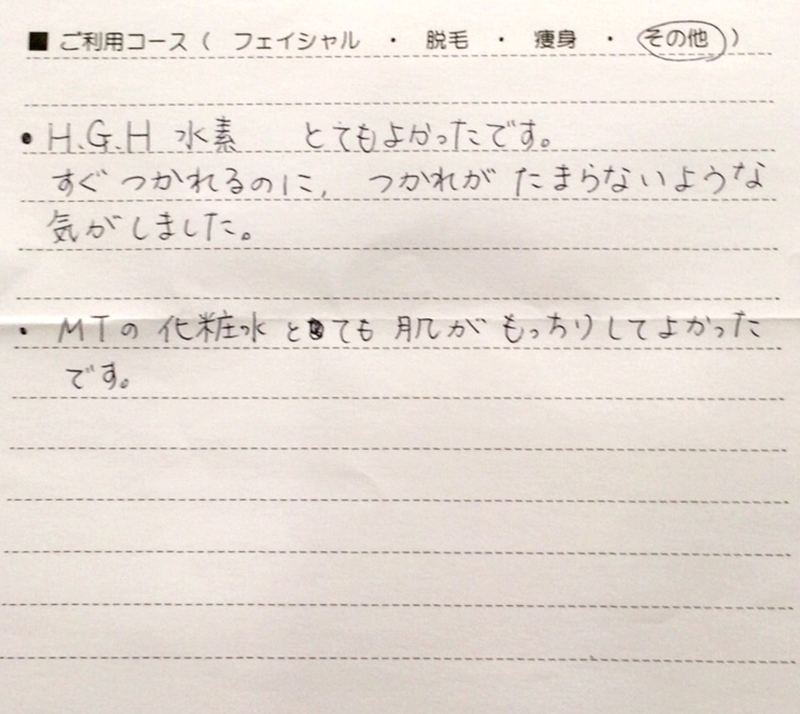 ■ ご利用コース（ フェイシャル ・ 脱毛 ・ 痩身 ・ その他 ）
• H.G.H 水素 とてもよかったです。
すぐつかれるのに, つかれがたまらないような
気がしました。
• MTの化粧水とても肌がもっちりしてよかった
です。